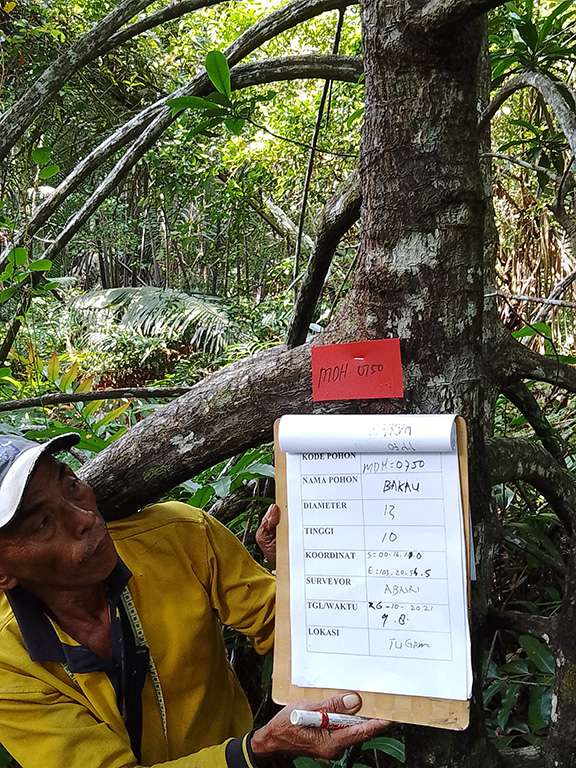 MDH 0750
KODE POHON MDH=0750
NAMA POHON BAKAU
DIAMETER 13
TINGGI 10
KOORDINAT S=00.16.
E=103.20.
SURVEYOR
TGL/WAKTU 26-10-2021
LOKASI